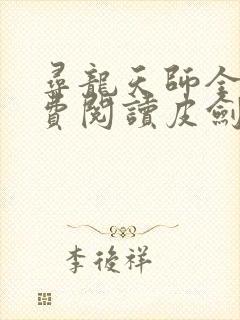 尋龍天師全
費閱讀皮劍
李後祥